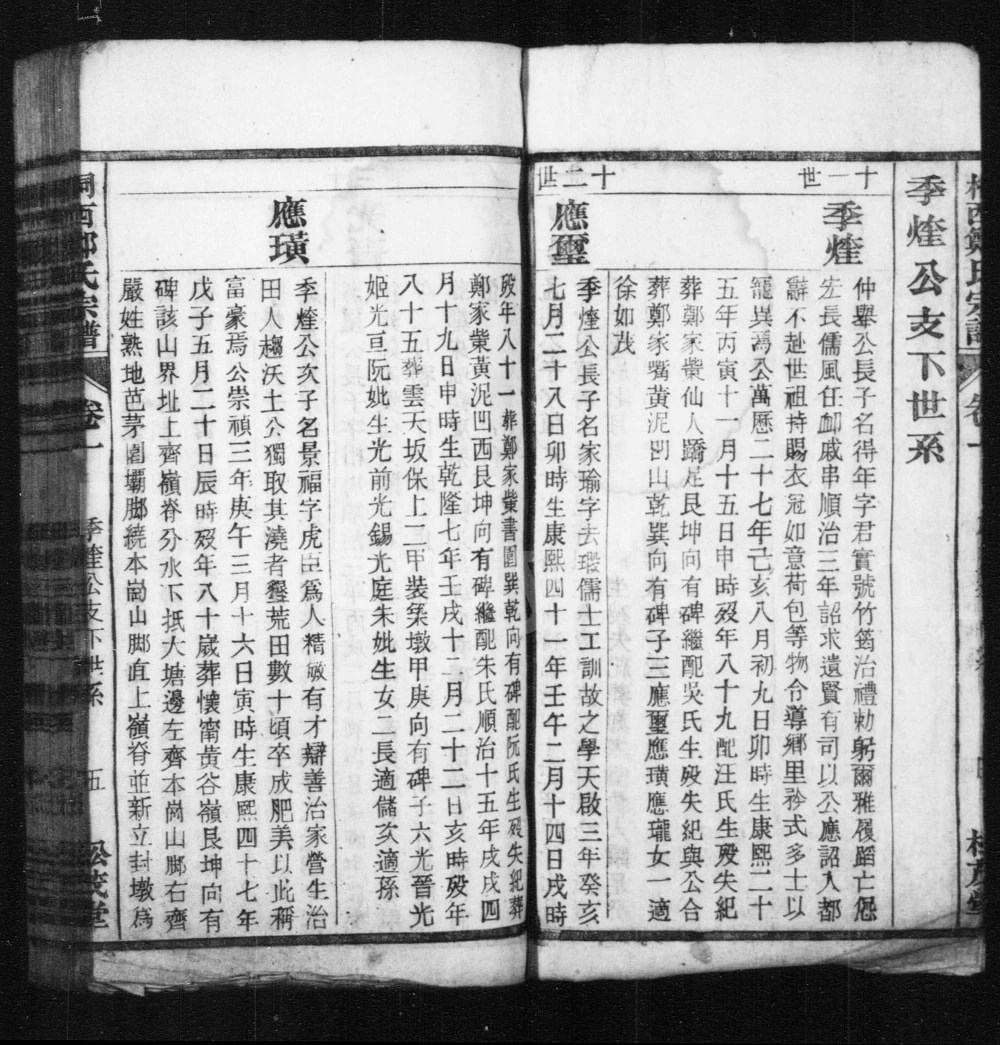 季煃公支下世系
十一世
季煃
仲舉公長子名得年字君實號竹筠治禮勅躬爾雅履蹈亡愆
宏長儒風任卹戚串順治三年詔求遺賢有司以公應詔入都
辭不赴世祖持賜衣冠如意荷包等物令導鄉里矜式多士以
寵異焉公萬曆二十七年己亥八月初九日卯時生康熙二十
五年丙寅十一月十五日申時歿年八十九配汪氏生歿失紀
葬鄭家柴仙人蹺足艮坤向有碑繼配吳氏生歿失紀與公合
葬鄭家嘴黃泥凹山乾巽向有碑子三應璽應璜應瓏女一適
徐如茂
十二世
應璽
季煃公長子名家瑜字去瑕儒士工訓故之學天啟三年癸亥
七月二十八日卯時生康熙四十一年壬午二月十四日戌時
歿年八十一葬鄭家柴書園巽乾向有碑配阮氏生歿失紀葬
鄭家柴黃泥凹西艮坤向有碑繼配朱氏順治十五年戊戌四
月十九日申時生乾隆七年壬戌十二月二十二日亥時歿年
八十五葬雲天坂保上一甲裝築墩甲庚向有碑子六光晉光
姬光亘阮妣生光前光錫光庭朱妣生女二長適儲次適孫
應璜
季煃公次子名景福字虎臣爲人精敏有才辯善治家營生治
田人趨沃土公獨取其澆者墾荒田數十頃卒成肥美以此稱
富豪焉公崇禎三年庚午三月十六日寅時生康熙四十七年
戊子五月二十日辰時歿年八十歲葬懷甯黃谷嶺艮坤向有
碑該山界址上齊嶺脊分水下抵大塘邊左齊本崗山脚右齊
嚴姓熟地芭茅園壩脚繞本崗山脚直上嶺脊並新立封墩爲
桐西鄭氏宗譜
卷一
季煃公支下世系
五
松茂堂